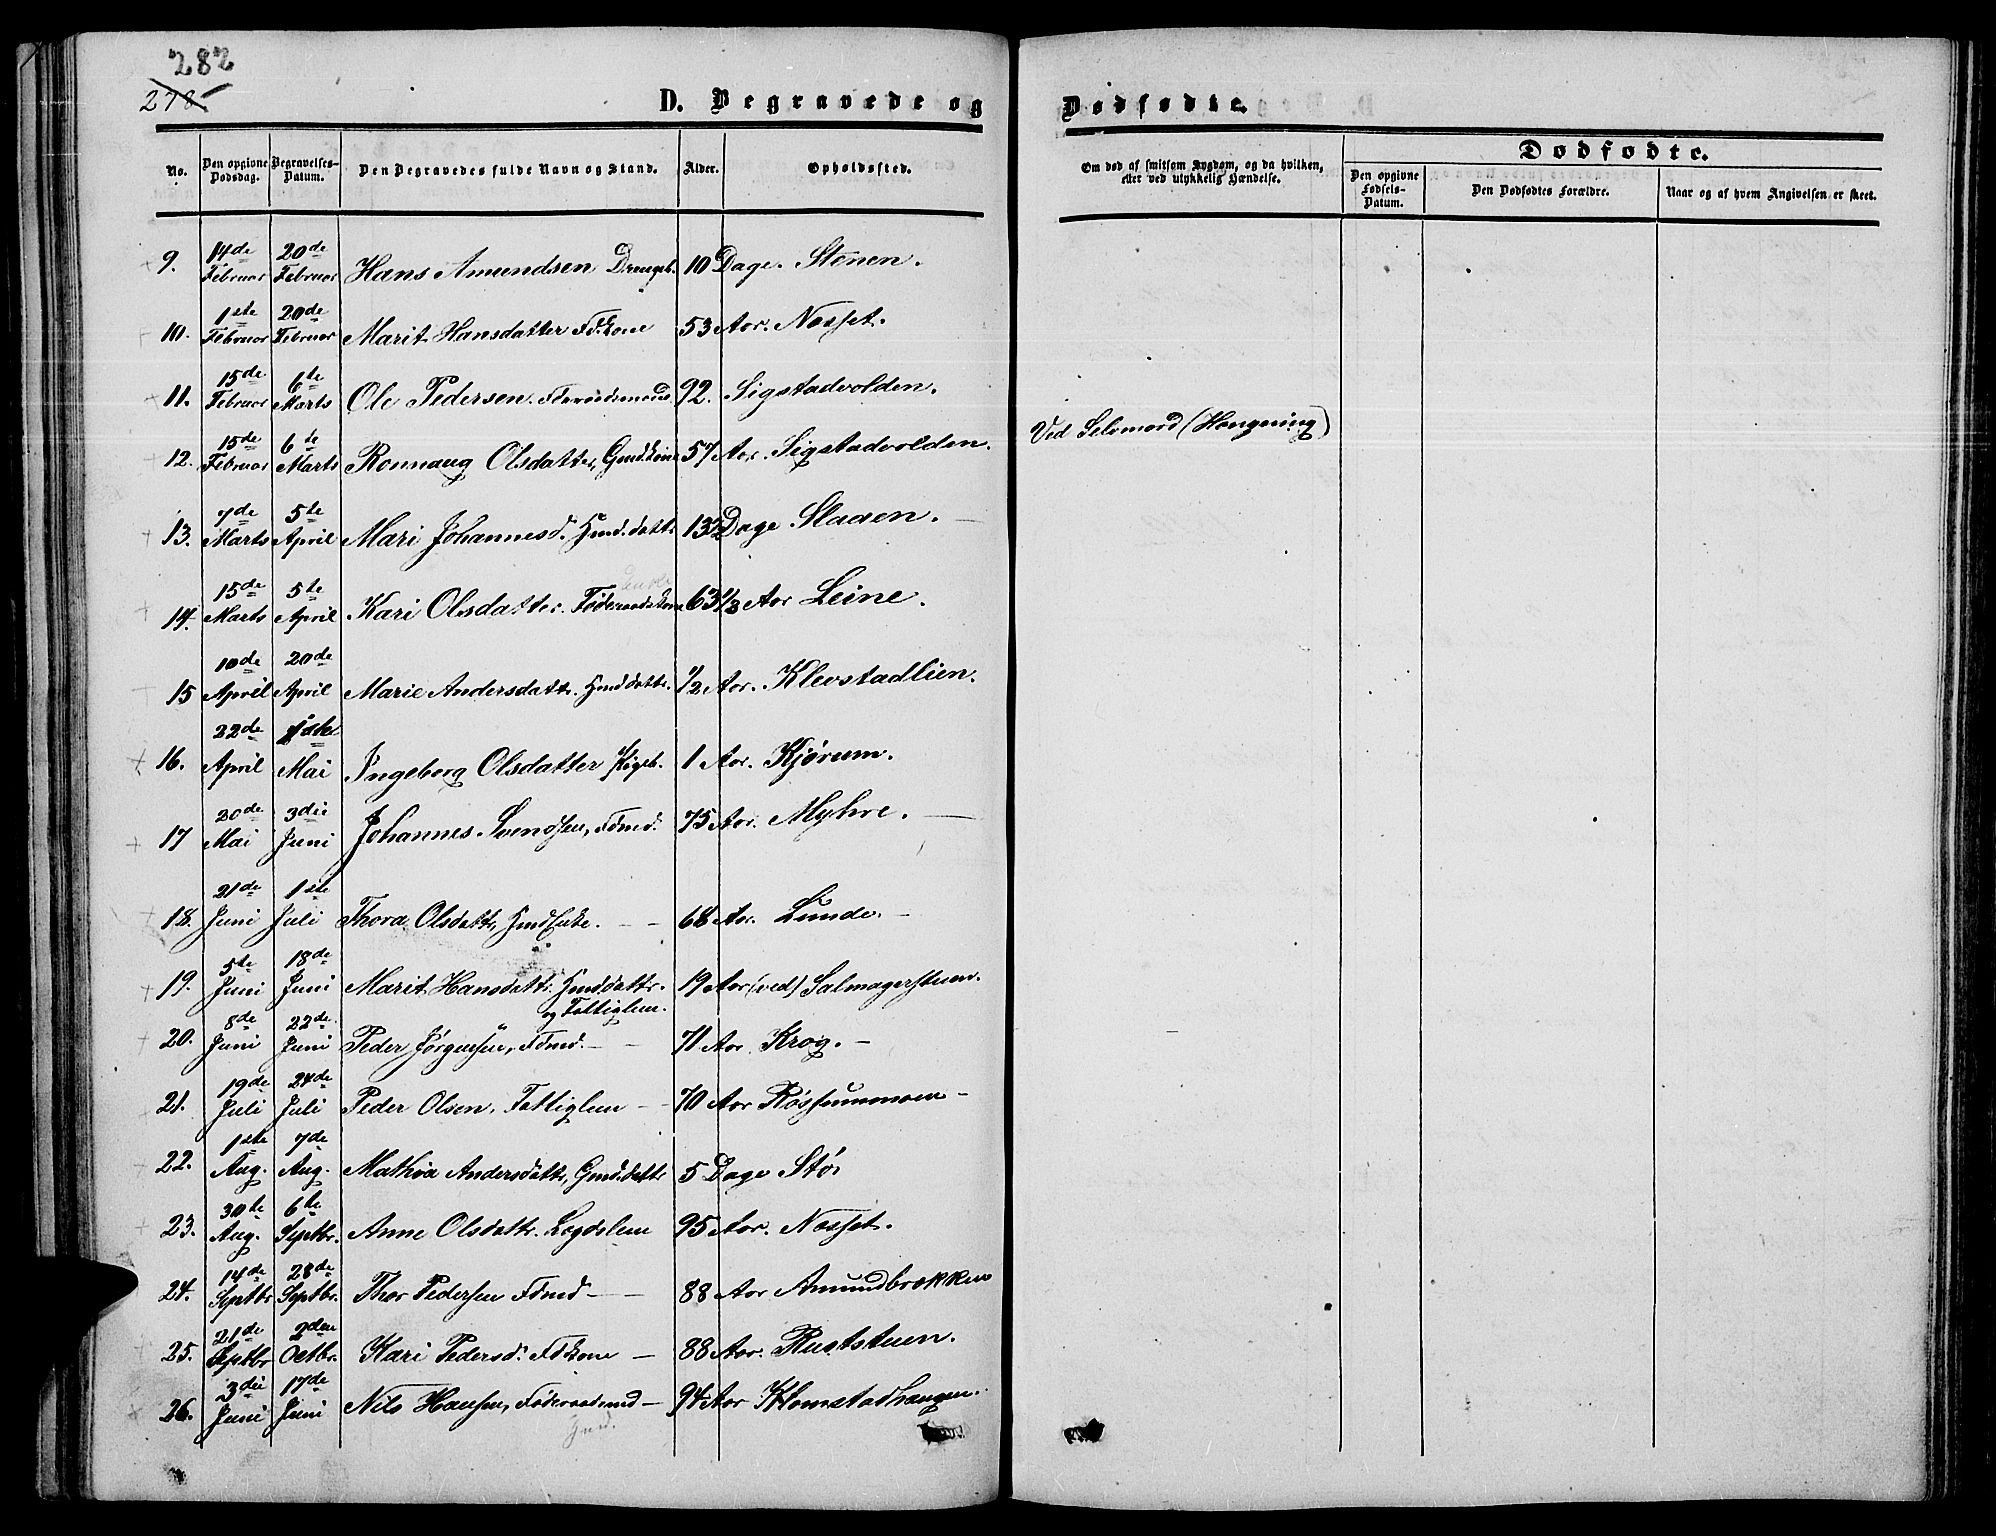 282
278.
D. Begravede og
Dødfødte.
No.
Den opgivne Dødsdag.
Begravelses-Datum.
Den Begravedes fulde Navn og Stand.
Alder.
Opholdssted.
Om død af smitsom Sygdom, og da hvilken, eller ved ulykkelig Hændelse.
Dødfødte.
Den opgivne Fødsels-Datum.
Den Dødfødtes Forældre.
Naar og af hvem Angivelsen er skeet.
9. 14de Februar 20de Februar Hans Amundsen Drengeb. 10 Dage. Stenen.
10. 1ste Februar 20de Februar Marit Hansdatter Fdkone 53 Aar. Nosset.
11. 15de Februar 6te Marts Ole Pedersen. 92. Sigstadvolden.
12. 15de Februar 6te Marts Ronnaug Olsdatter, Gmdkone 57 Aar. Sigstadvolden. Ved Selvmord (Hængning)
13. 7de Marts 5te April Mari Johannesd. Hmd.datt. Dage Slaaen.
14. 15de Marts 5te April Kari Olsdatter. Føderaadskone 63 1/3 Aar Leine.
15 10de April 20de April Marie Andersdatt. Hmddatt. 1/2 Aar. Klevstadlien.
16. 22de April Mai Ingeborg Olsdatter Pigeb. 1 Aar. Kjørum.
17 20de Mai 3die Juni Johannes Svendsen, Fdmd. 75 Aar. Myhre.
18. 21de Juni 1ste Juli Thora Olsdatt, Hmd Enke. 68 Aar. Lunde.
19. 5te Juni 18de Juni Marit Hansdatt. Hmddattr. og Fattiglem. 19 Aar (ved) Salmagerstuen.
20. 8de Juni 22de Juni Peder Jørgensen, Fdmd. 71 Aar Krog.
21. 19de Juli 24de Juli Peder Olsen, Fattiglem 70 Aar Røssummoen
22. 1ste Aug. 7de Aug. Mathea Andersdatt, Gmd.datt 5 Dage Stør
23. 30te Aug. 6te Septbr. Anne Olsdattr. Lægdslem 95 Aar. Nosset.
24. 14de Septbr 28de Septbr. Thor Pedersen Fdmd 88 Aar Amundbrækken
25. 21de Septbr 2den Octbr. Kari Pedersd. Fdkone 88 Aar. Ruststuen.
26. 3die Juni 17de Juni Nils Hansen, Føderaadsmd 94 Aar Klomstadhaugen.